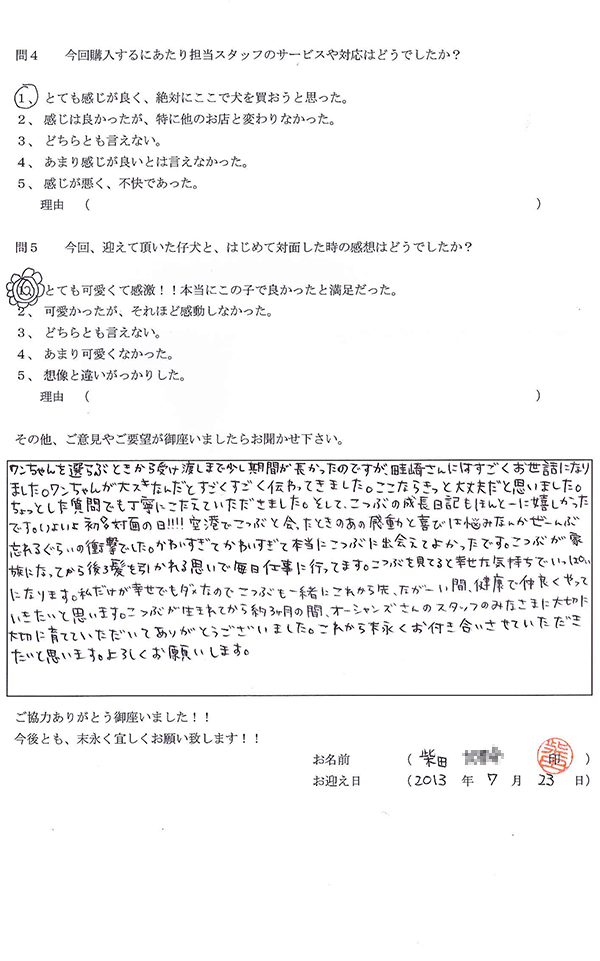 問4　今回購入するにあたり担当スタッフのサービスや対応はどうでしたか？
1、とても感じが良く、絶対にここで犬を買おうと思った。
2、感じは良かったが、特に他のお店と変わりなかった。
3、どちらとも言えない。
4、あまり感じが良いとは言えなかった。
5、感じが悪く、不快であった。
理由　（　　　）
問5　今回、迎えて頂いた仔犬と、はじめて対面した時の感想はどうでしたか？
1、とても可愛くて感激！！本当にこの子で良かったと満足だった。
2、可愛かったが、それほど感動しなかった。
3、どちらとも言えない。
4、あまり可愛くなかった。
5、想像と違いがっかりした。
理由　（　　　）
その他、ご意見やご要望が御座いましたらお聞かせ下さい。
ワンちゃんを選らぶときから受け渡しまで少し期間が長かったのですが、畦崎さんにはすごくお世話になり
ました。ワンちゃんが大スキなんだとすごくすごく伝わってきました。ここならきっと大丈夫だと思いました。
ちょっとした質問でも丁寧にこたえていただきました。そして、こつぶの成長日記もほんとーに嬉しかった
です。いよいよ初対面の日!!!! 空港でこつぶと会ったときのあの感動と喜びは悩みなんかぜーんぶ
忘れるぐらいの衝撃でした。かわいすぎてかわいすぎて本当にこつぶに出会えてよかったです。こつぶが家
族になってから後ろ髪を引かれる思いで毎日仕事に行ってます。こつぶを見てると幸せな気持ちでいっぱい
になります。私だけが幸せでもダメなのでこつぶも一緒にこれから先、ながーい間、健康で仲良くやって
いきたいと思います。こつぶが生まれてから約3ヶ月の間、オーシャンズさんのスタッフのみなさまに大切に
大切に育てていただいてありがとうございました。これから末永くお付き合いさせていただき
たいと思います。よろしくお願いします。
ご協力ありがとう御座いました！！
今後とも、末永く宜しくお願い致します！！
お名前　（柴田　　印　）
お迎え日　（2013 年 7 月 23 日）